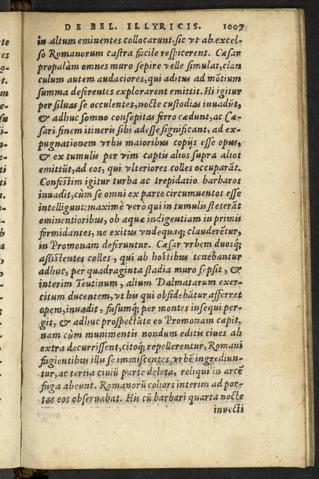 DE BEL. ILLYRICIS. 1007
in altum eminentes collocarunt, sic vt ab excel-
so Romanorum castra facile respicerent. Cæsar
propalàm omnes muro sepire velle simulat, clan
culum autem audaciores, qui aditus ad mõtium
summa deferentes explorarent emittit. Hi igitur
per siluas se occulentes, nocte custodias inuadũt,
& adhuc somno consopitas ferro cædunt, ac Cæ-
sari finem itineris sibi adesse significant, ad ex-
pugnationem vrbis maioribus copijs esse opus,
& ex tumulis per vim captis alios supra alios
emittũt, ad eos, qui vlteriores colles occuparãt.
Confestim igitur turba ac trepidatio barbaros
inuadit, cùm se omni ex parte circumuentos esse
intelligunt: maximè verò qui in tumulis steterãt
eminentioribus, ob aquæ indigentiam in primis
formidantes, ne exitus vndequaq; clauderẽtur,
in Promonam deferuntur. Cæsar vrbem duosq;
assistentes colles, qui ab hostibus tenebantur
adhuc, per quadraginta stadia muro sepsit, &
interim Teutinum, alium Dalmatarum exer-
citum ducentem, vt his qui obsidebãtur afferret
opem, inuadit, fusumq; per montes insequi per-
git, & adhuc prospectãte eo Promonam capit,
nam cùm munimentis nondum editis ciues ab
extra decurrissent, citoq; repellerentur, Romani
fugientibus illis se immiscentes vrbẽ ingrediun-
tur, ac tertia ciuiũ parte deleta, reliqui in arcẽ
fuga abeunt. Romanorũ cohors interim ad por-
tas eos obseruabat. His cũ barbari quarta nocte
inuecti